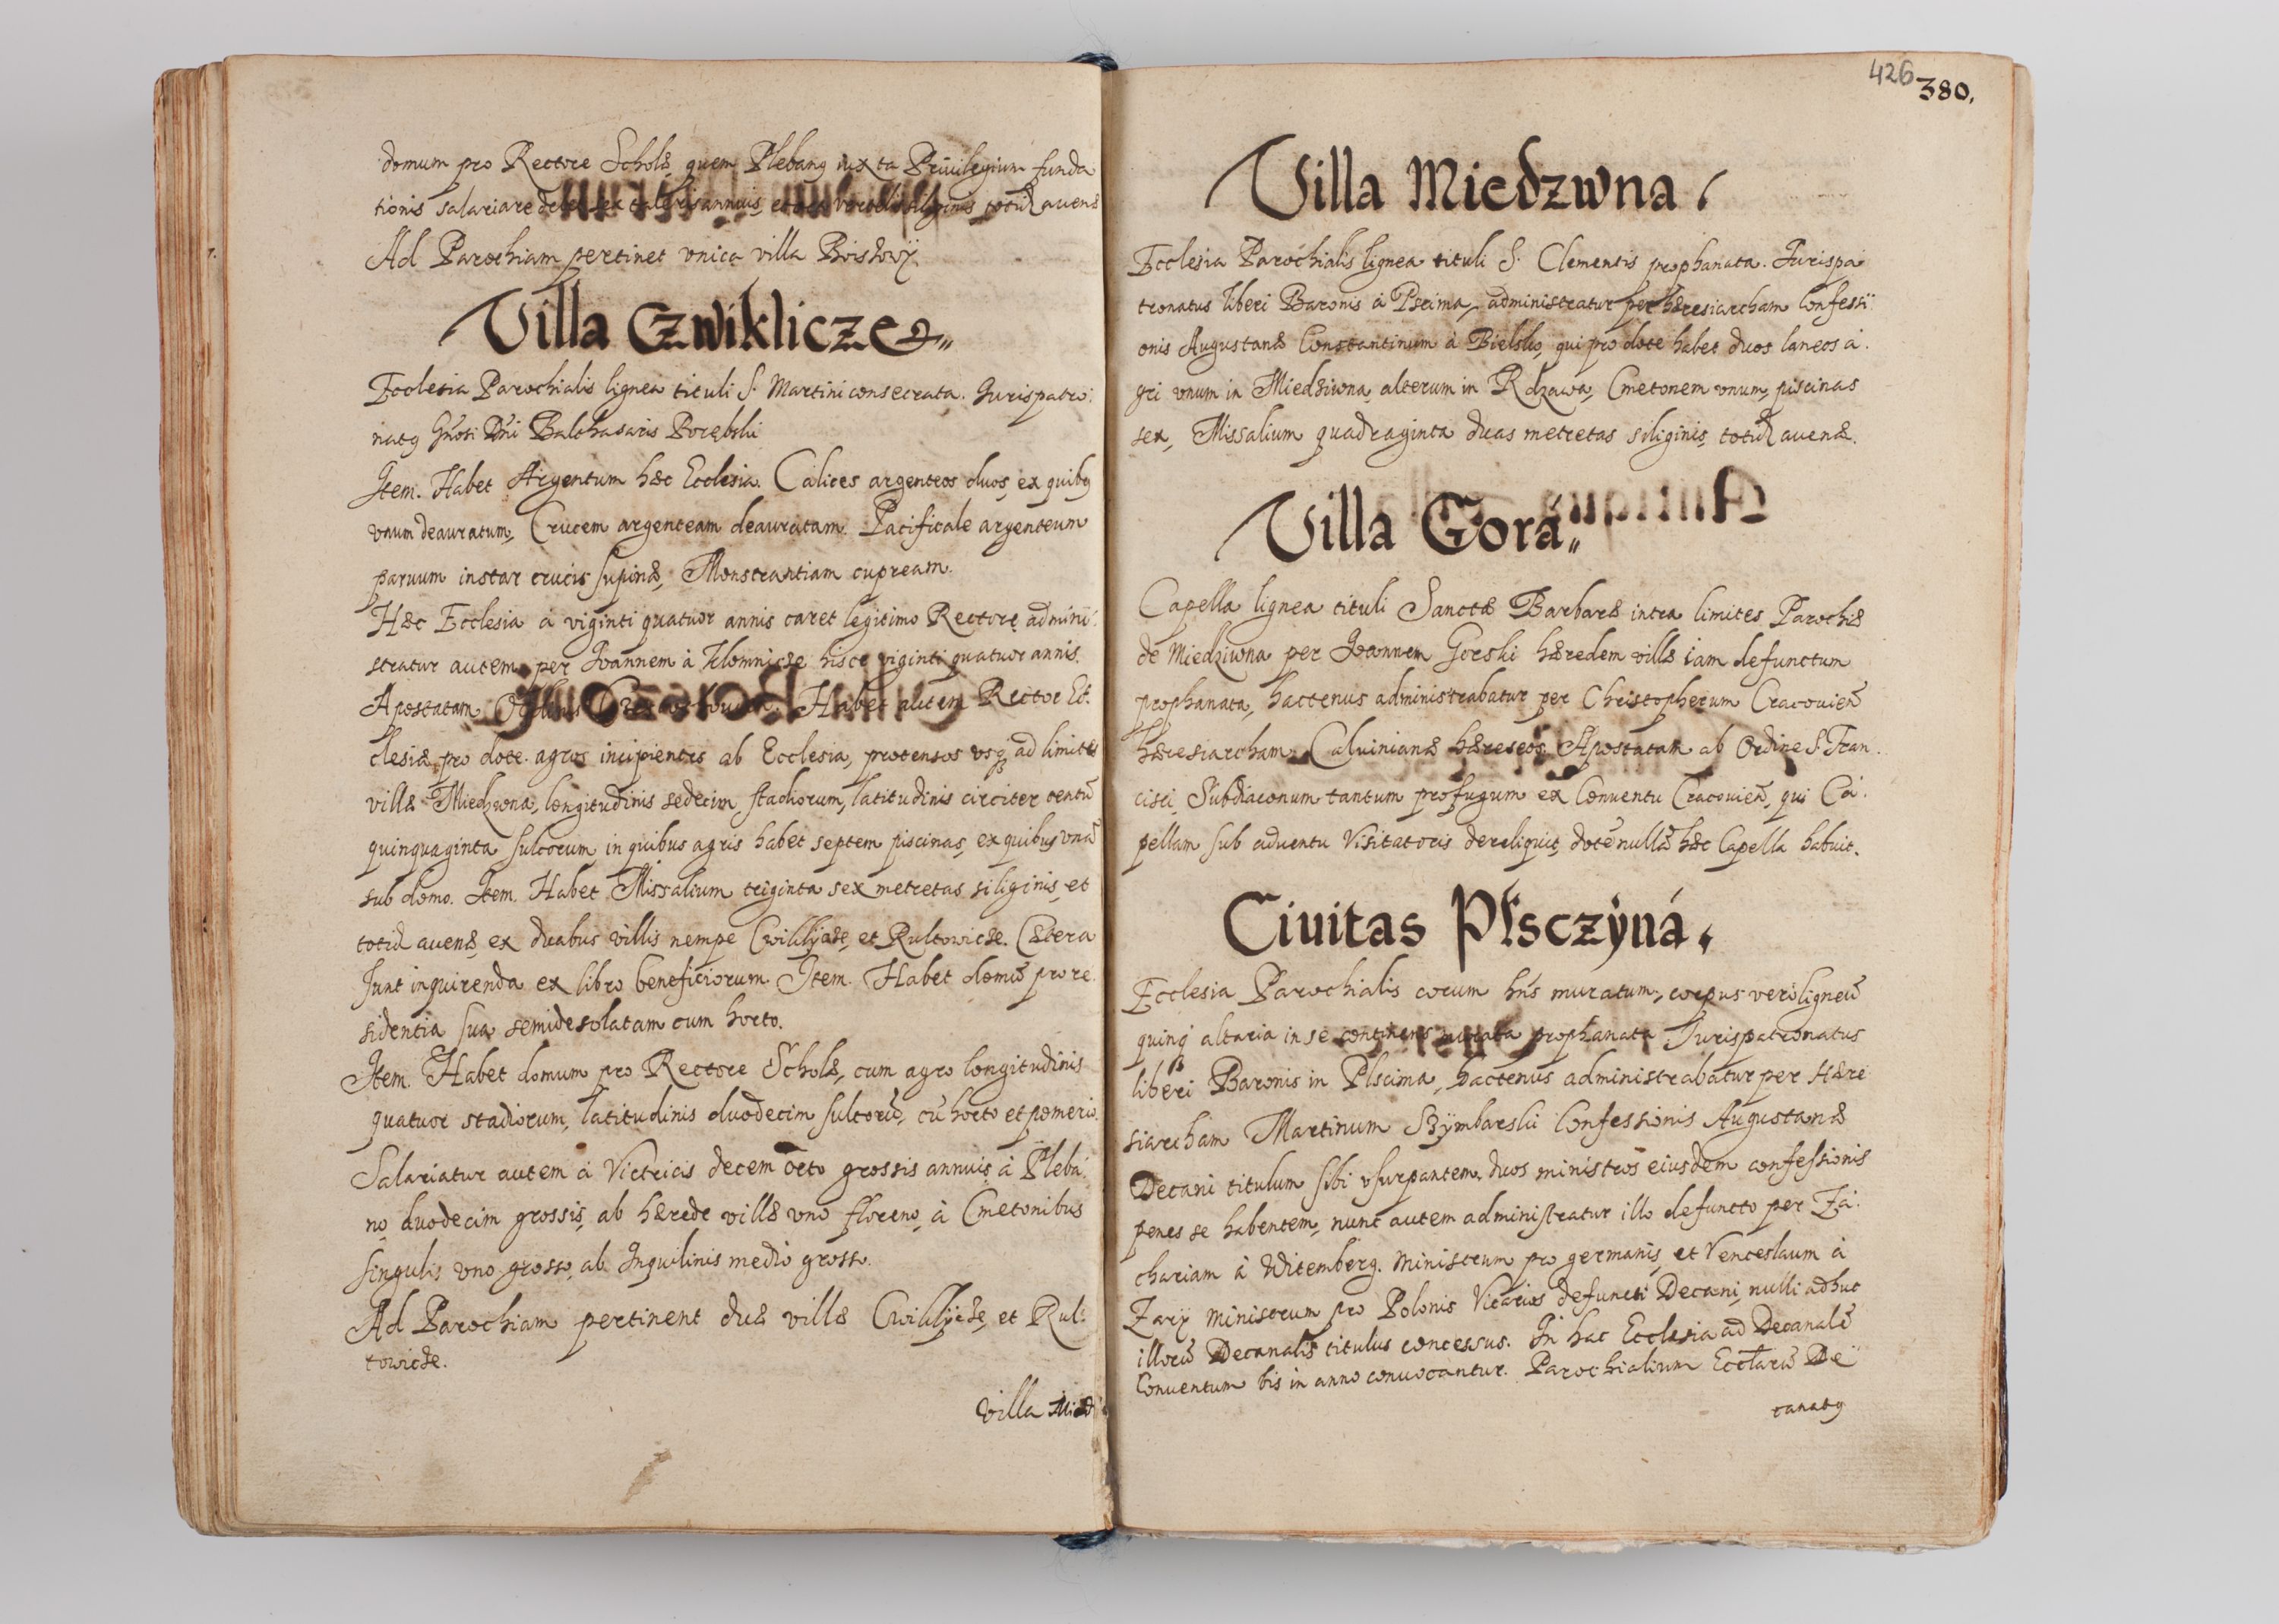 domum pro Rectore Scholæ, quem Plebanꝰ iuxta Priuilegium funda
tionis salariare debet sex taleris annuis, et octo vertelis siliginis totiđ auenæ
Ad Parochiam pertinet vnica villa
Villa Czwiklicze
Ecclesia Parochialis lignea tituli S. Martini consecrata. Jurispatro:
natꝰ Gñosi Dñi Balthasaris Porębski
Item. Habet Argentum hæc Ecclesia. Calices argenteos duos, ex quibꝰ
vnum deauratum, Crucem argenteam deauratam. Pacificale argenteum
paruum instar crucis supinæ, Monstrantiam cupream.
Hæc Ecclesia à viginti quatuor annis caret legitimo Rectore, admini:
stratur autem per Joannem à hisce viginti quatuor annis.
Apostatam Ordinis Habet autem Rector Ec:
clesiæ pro dote agros incipientes ab Ecclesia, protensos vsqꝫ ad limites
villæ Miedzwna, longitudinis sedecim stadiorum, latitudinis circiter centũ
quinquaginta sulcorum, in quibus agris habet septem piscinas, ex quibus vnã
sub domo. Item. Habet Missalium triginta sex metretas siliginis, et
totiđ auenæ, ex duabus villis nempe Cwiklycze, et Rultowicze. Cætera
sunt inquirenda ex libro beneficiorum. Item. Habet domũ pro re:
sidentia sua semidesolatam cum horto.
Item. Habet domum pro Rectore Scholæ, cum agro longitudinis
quatuor stadiorum, latitudinis duodecim sulcorũ, cũ horto et pomerio.
Salariatur autem à Victricis decem octo grossis annuis, à Pleba:
no duodecim grossis, ab hærede villæ vno floreno, à Cmetonibus
singulis vno grosso, ab Inquilinis medio grosso.
Ad Parochiam pertinent duæ villæ Cwiklycze, et Rul:
towicze.
villa Miedz
426
380.
Villa Miedzwna
Ecclesia Parochialis lignea tituli S. Clementis prophanata. Jurispa
tronatus liberi Baronis à Pscima, administratur per hæresiarcham Confessi
onis Augustanæ Constantinum à Bielsko, qui pro dote habet duos laneos a:
gri vnum in Miedziwna, alterum in Rdzawa, Cmetonem vnum, piscinas
sex, Missalium quadraginta duas metretas siliginis, totiđ auenæ.
Villa Gora
Capella lignea tituli Sanctæ Barbaræ intra limites Parochiæ
de Miedziwna per Joannem Gorski hæredem villæ iam defunctum
prophanata, hactenus administrabatur per Christopherum Cracouieñ
hæresiarcham Caluinianæ hæreseos Apostatam ab Ordine S. Fran:
cisci, Subdiaconum tantum profugum ex Conuentu Cracouieñ, qui Ca:
pellam sub aduentu Visitatoris dereliquit, dotẽ nullã hæc Capella habuit.
Ciuitas Plsczÿná
Ecclesia Parochialis corum hñs muratum, corpus verò ligneũ
quinqꝫ altaria in se continens murata prophanata. Jurispatronatus
liberi Baronis in Plscima, hactenus administrabatur per Hære
siarcham Martinum Szÿmbarski Confessionis Augustanæ
Decani titulum sibi vsurpantem, duos ministros eiusdem confessionis
penes se habentem, nunc autem administratur illo defuncto per Za:
chariam à Witemberg. Ministrum pro germanis, et Venceslaum à
Zarÿ ministrum pro Polonis Vicarios defuncti Decani, nulli adhuc
illorũ Decanalis titulus concessus. In hac Ecclesia ad Decanalẽ
Conuentum bis in anno conuocantur. Parochialium Eccłarũ De
canatꝰ